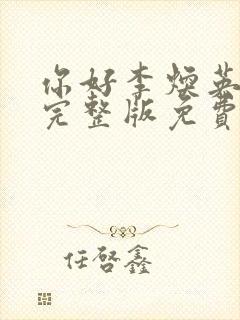 你好李焕英
完整版免费
任啓鑫